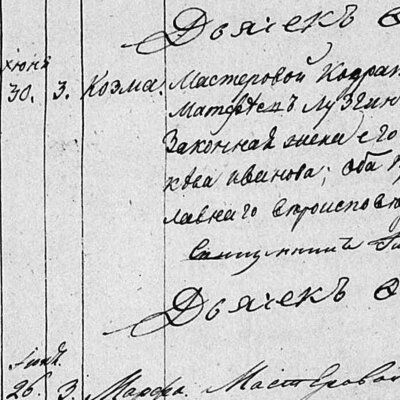 Дьячекъ
июня
30. 3. Козма. Мастеровой Кодрат
Матфеевъ Лузгин
Законная жена его
иванова; оба
лавнаго вѣроисповѣ
Священникъ
Дьячекъ
26. 3. Марфа. Мастеровой